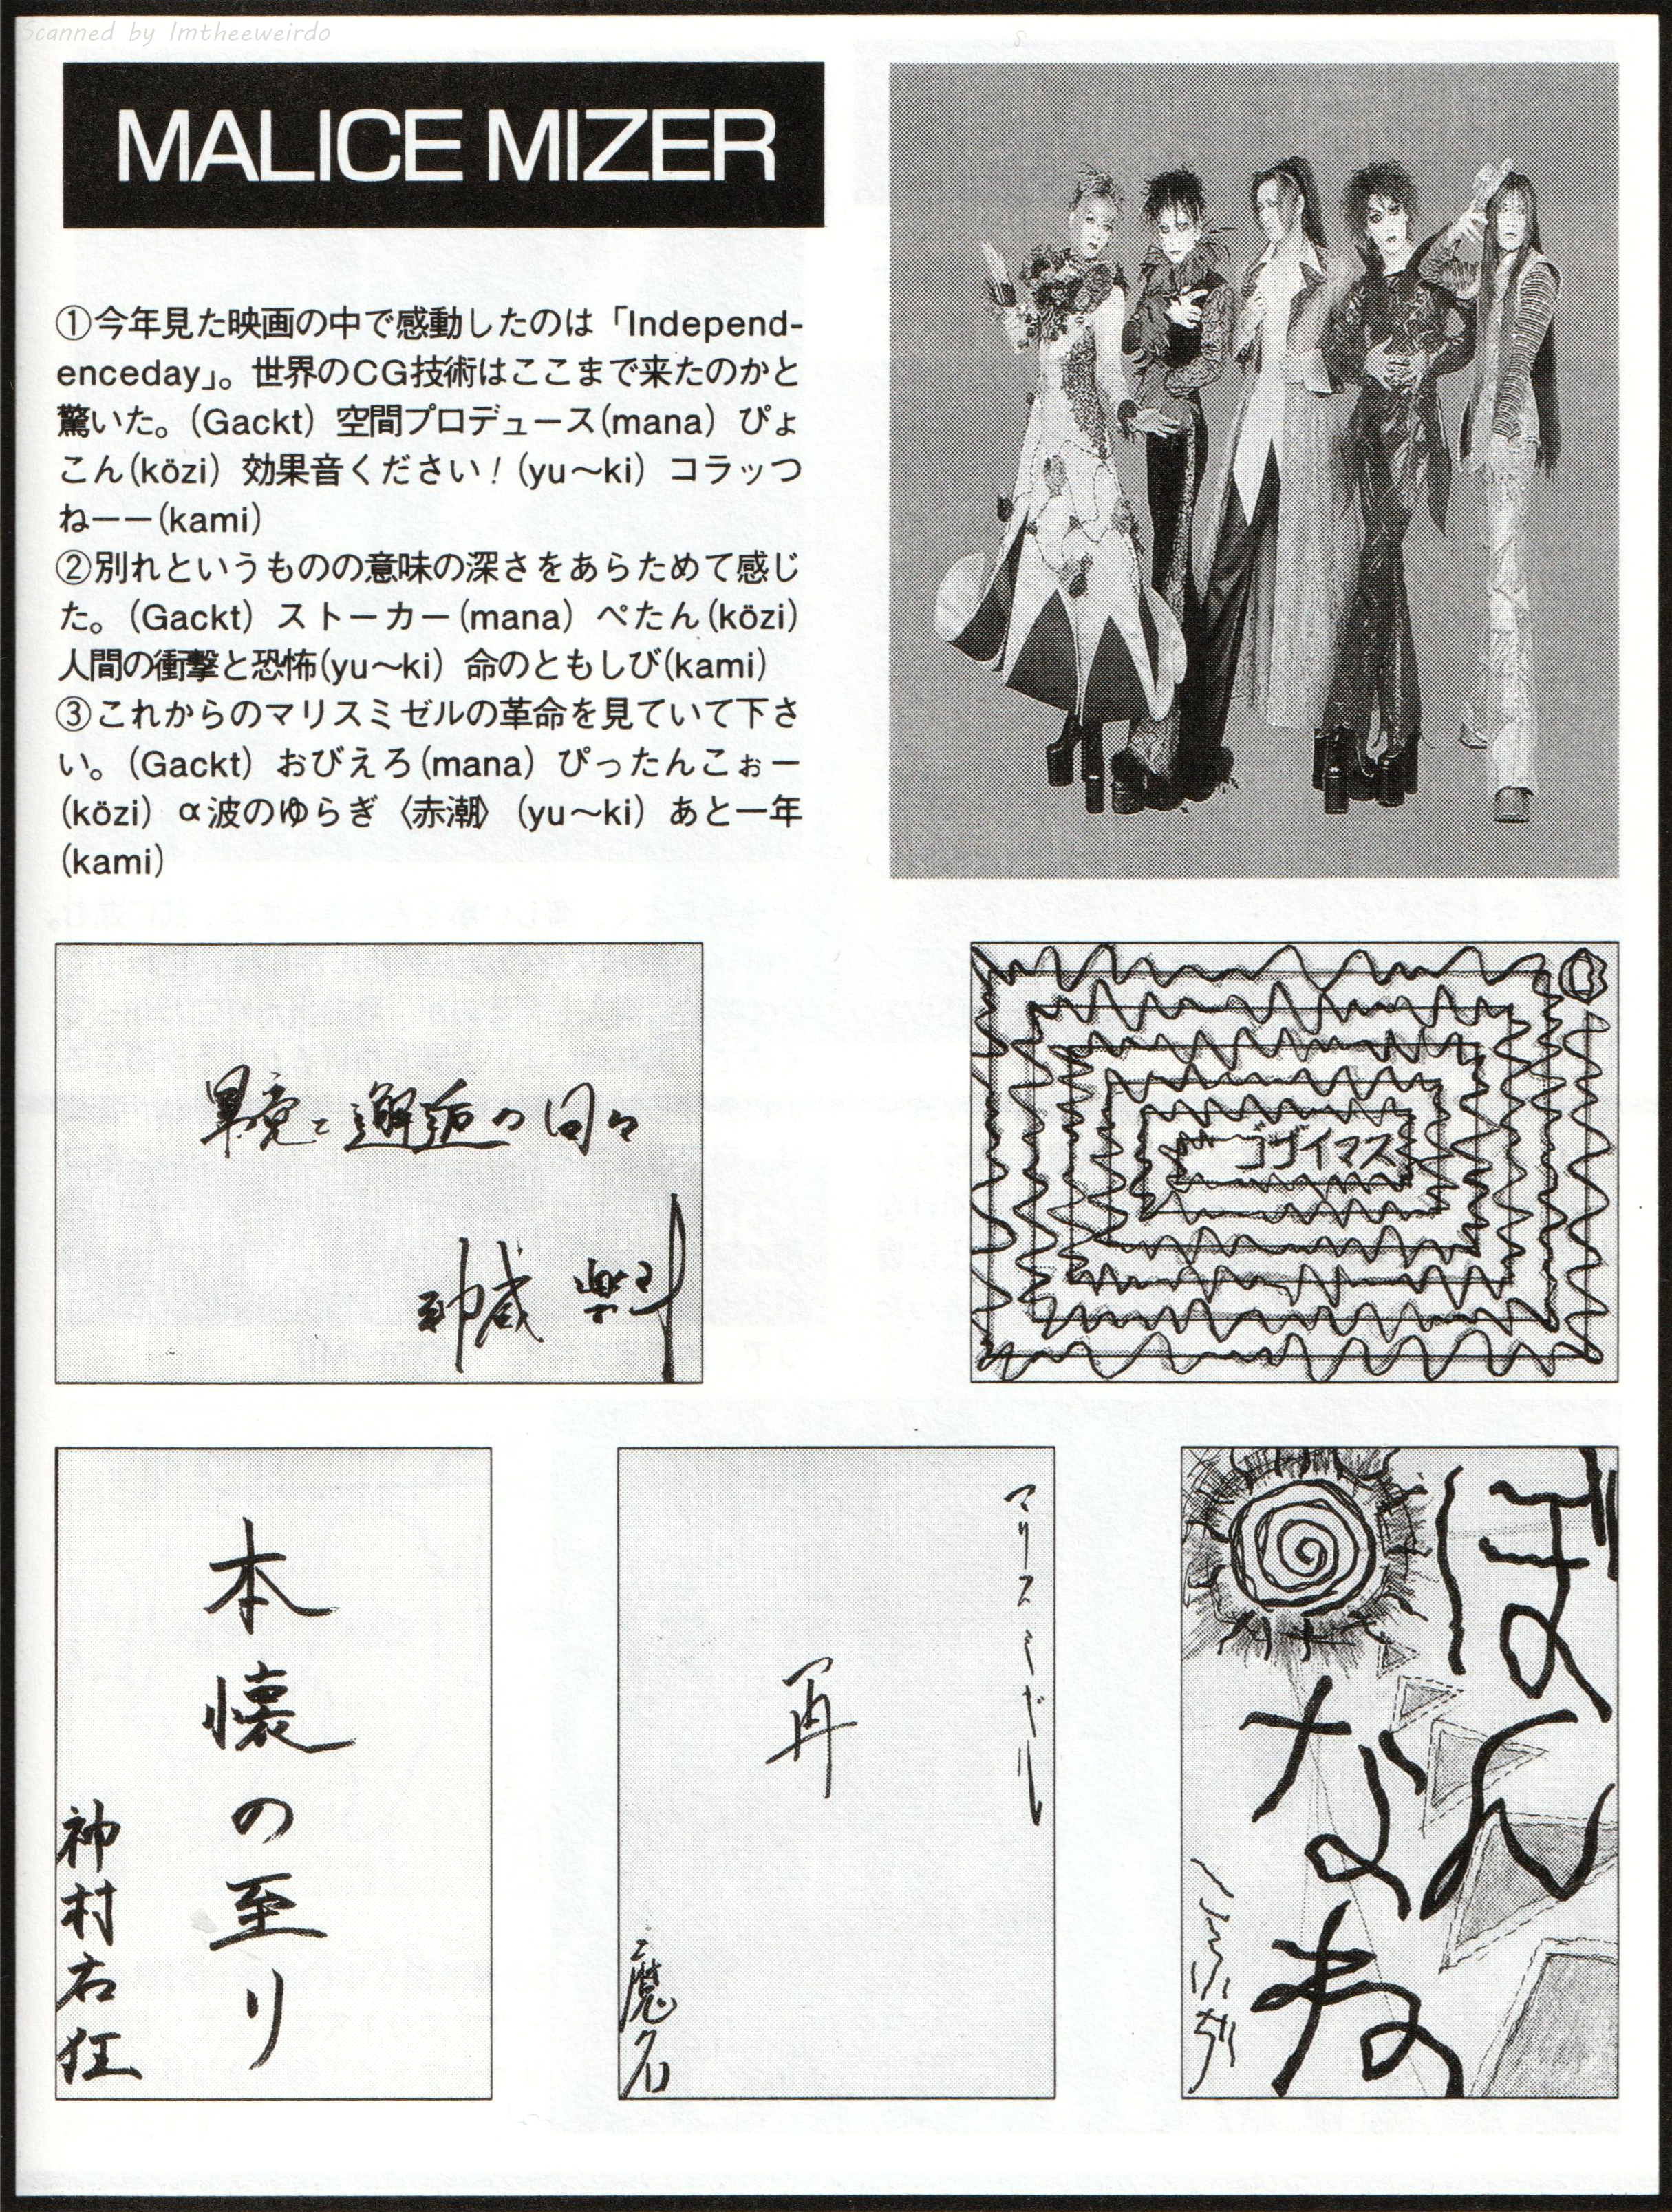 Scanned by Imtheeweirdo
MALICE MIZER
①今年見た映画の中で感動したのは「Independ-
enceday」。世界のCG技術はここまで来たのかと
驚いた。(Gackt) 空間プロデュース(mana) ぴょ
こん(közi) 効果音ください！(yu〜ki) コラッつ
ねーー(kami)
②別れというものの意味の深さをあらためて感じ
た。(Gackt) ストーカー(mana) ぺたん(közi)
人間の衝撃と恐怖(yu〜ki) 命のともしび(kami)
③これからのマリスミゼルの革命を見ていて下さ
い。(Gackt) おびえろ(mana) ぴったんこぉー
(közi) α波のゆらぎ〈赤潮〉(yu〜ki) あと一年
(kami)
邂逅の日々
神威 楽斗
ゴザイマス
本懐の至り
神村右狂
マリスミゼル
再
魔名
ぼん
なわ